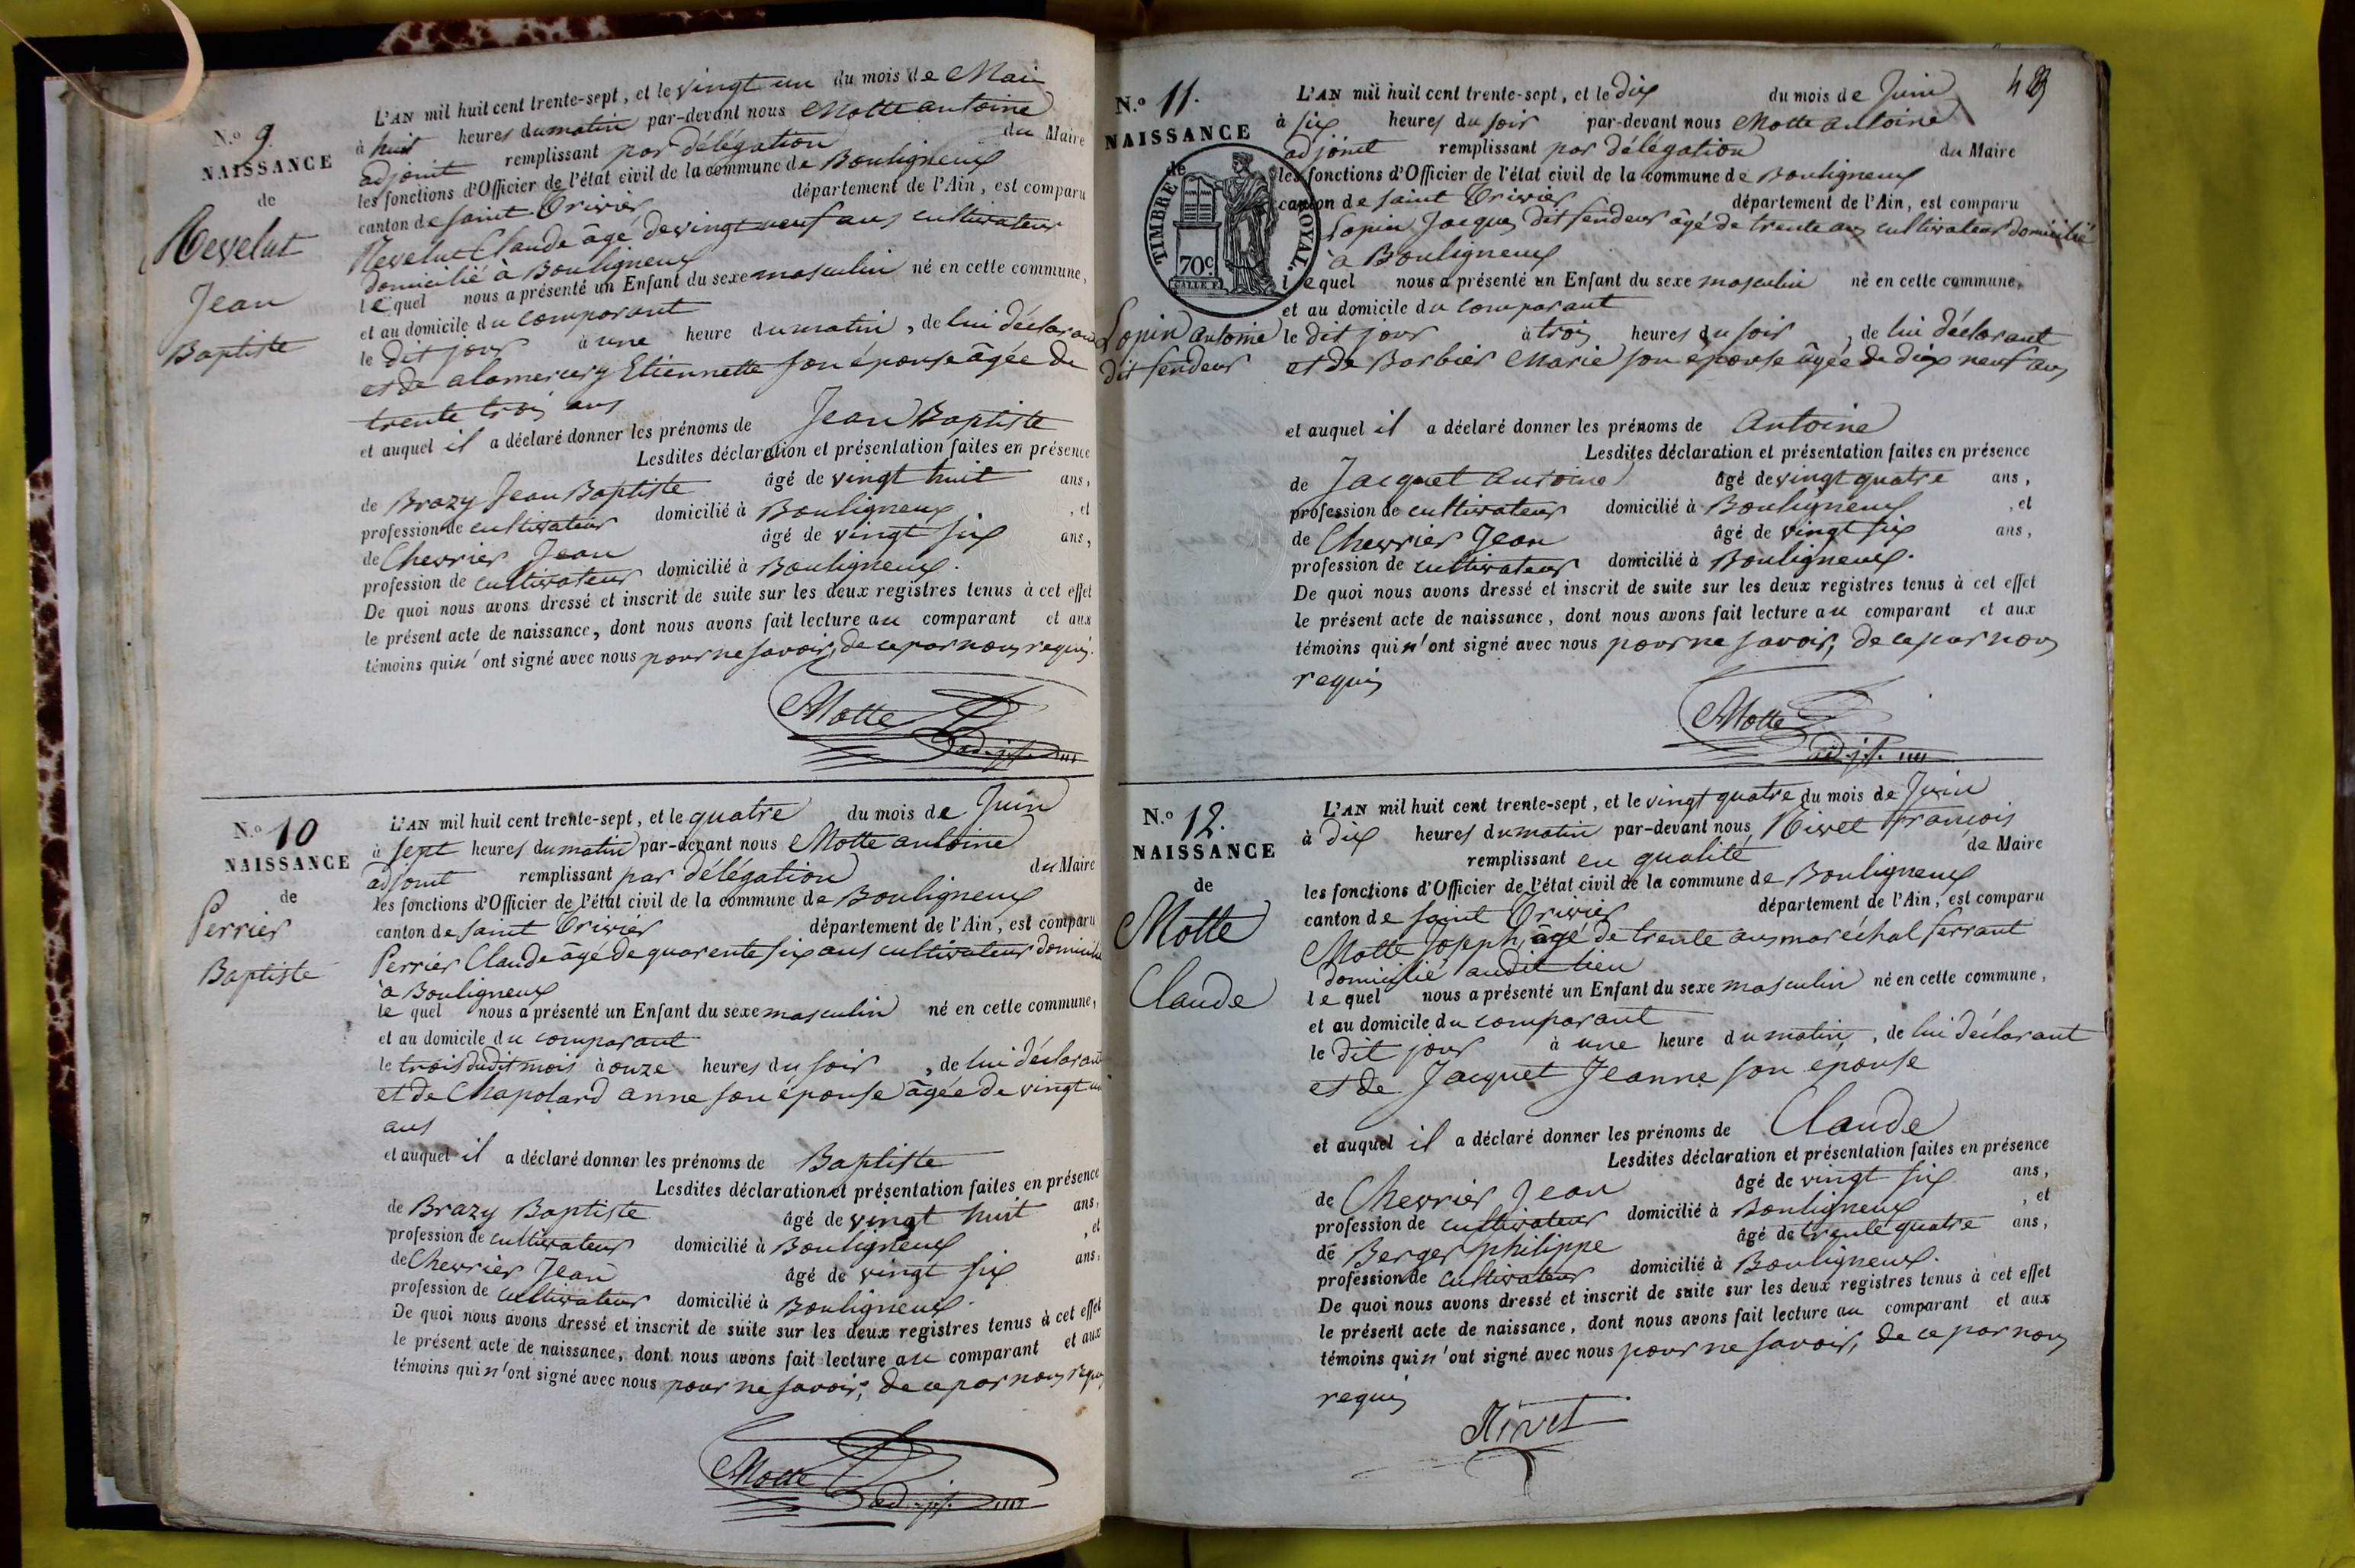 N.o 9.
NAISSANCE
de
Revelut
Jean
Baptiste
L'AN mil huit cent trente-sept, et le vingt un du mois de Mai
à huit heures du matin par-devant nous Motte antoine
adjoint remplissant par délégation du Maire
les fonctions d'Officier de l'état civil de la commune de Bouligneux
canton de saint Trivier département de l'Ain, est comparu
Revelut Claude âgé de vingt neuf ans cultivateur
domicilié à Bouligneux
lequel nous a présenté un Enfant du sexe masculin né en cette commune,
et au domicile du comparant
le dit jour à une heure du matin, de lui déclarant
et de alamercery Etiennette son épouse âgée de
trente trois ans
et auquel il a déclaré donner les prénoms de Jean Baptiste
Lesdites déclaration et présentation faites en présence
de Brazy Jean Baptiste âgé de vingt huit ans,
profession de cultivateur domicilié à Bouligneux, et
de Chevrier Jean âgé de vingt six ans,
profession de cultivateur domicilié à Bouligneux.
De quoi nous avons dressé et inscrit de suite sur les deux registres tenus à cet effet
le présent acte de naissance, dont nous avons fait lecture au comparant et aux
témoins qui n'ont signé avec nous pour ne savoir, de ce par nous requis.
Motte
adjt.
N.o 10
NAISSANCE
de
Perrier
Baptiste
L'AN mil huit cent trente-sept, et le quatre du mois de Juin
à sept heures du matin par-devant nous Motte antoine
adjoint remplissant par délégation du Maire
les fonctions d'Officier de l'état civil de la commune de Bouligneux
canton de saint Trivier département de l'Ain, est comparu
Perrier Claude âgé de quarente six ans cultivateur domicilié
à Bouligneux
le quel nous a présenté un Enfant du sexe masculin né en cette commune,
et au domicile du comparant
le trois dudit mois à onze heures du soir, de lui déclarant
et de Chapolard anne son épouse âgée de vingt un
ans
et auquel il a déclaré donner les prénoms de Baptiste
Lesdites déclaration et présentation faites en présence
de Brazy Baptiste âgé de vingt huit ans,
profession de cultivateur domicilié à Bouligneux, et
de Chevrier Jean âgé de vingt six ans,
profession de cultivateur domicilié à Bouligneux.
De quoi nous avons dressé et inscrit de suite sur les deux registres tenus à cet effet
le présent acte de naissance, dont nous avons fait lecture au comparant et aux
témoins qui n'ont signé avec nous pour ne savoir, de ce par nous requis
Motte
adjt.
N.o 11.
NAISSANCE
de
TIMBRE ROYAL.
70c
Lopin antoine
dit fendeur
L'AN mil huit cent trente-sept, et le dix du mois de Juin
à six heures du soir par-devant nous Motte antoine
adjoint remplissant par délégation du Maire
les fonctions d'Officier de l'état civil de la commune de Bouligneux
canton de saint Trivier département de l'Ain, est comparu
Lopin Jacques dit fendeur âgé de trente ans cultivateur domicilié
à Bouligneux
lequel nous a présenté un Enfant du sexe masculin né en cette commune,
et au domicile du comparant
le dit jour à trois heures du soir, de lui déclarant
et de Barbier Marie son épouse âgée de dix neuf ans
et auquel il a déclaré donner les prénoms de Antoine
Lesdites déclaration et présentation faites en présence
de Jacquet antoine âgé de vingt quatre ans,
profession de cultivateur domicilié à Bouligneux, et
de Chevrier Jean âgé de vingt six ans,
profession de cultivateur domicilié à Bouligneux.
De quoi nous avons dressé et inscrit de suite sur les deux registres tenus à cet effet
le présent acte de naissance, dont nous avons fait lecture au comparant et aux
témoins qui n'ont signé avec nous pour ne savoir, de ce par nous
requis
Motte
adjt.
N.o 12.
NAISSANCE
de
Motte
Claude
L'AN mil huit cent trente-sept, et le vingt quatre du mois de Juin
à dix heures du matin par-devant nous Nivet françois
remplissant en qualité de Maire
les fonctions d'Officier de l'état civil de la commune de Bouligneux
canton de saint Trivier département de l'Ain, est comparu
Motte Joseph, âgé de trente ans maréchal ferrant
domicilié audit lieu
lequel nous a présenté un Enfant du sexe masculin né en cette commune,
et au domicile du comparant
le dit jour à une heure du matin, de lui déclarant
et de Jacquet Jeanne son epouse
et auquel il a déclaré donner les prénoms de Claude
Lesdites déclaration et présentation faites en présence
de Chevrier Jean âgé de vingt six ans,
profession de cultivateur domicilié à Bouligneux, et
de Berger philippe âgé de trente quatre ans,
profession de cultivateur domicilié à Bouligneux.
De quoi nous avons dressé et inscrit de suite sur les deux registres tenus à cet effet
le présent acte de naissance, dont nous avons fait lecture au comparant et aux
témoins qui n'ont signé avec nous pour ne savoir, de ce par nous
requis
Nivet